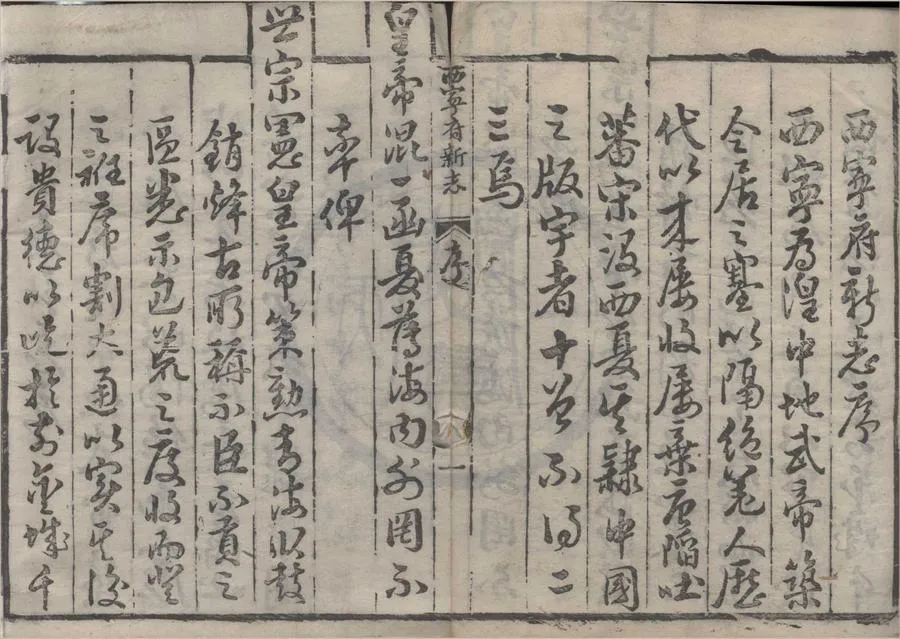 西寧府新志序
西寧為湟中地武帝築
令居之塞以隔絕羌人歷
代以來屢收屢棄唐陷吐
蕃宋沒西夏其隸中國
之版宇者十曾不得二
三焉
西寧府新志
序
一
皇帝混一函夏薄海內外罔不
率俾
世宗憲皇帝策勲青海以鼓
銷烽古所稱不臣不貢之
區悉示包荒之度收而登
之衽席割大通以實其後
設貴德以 於前金城千